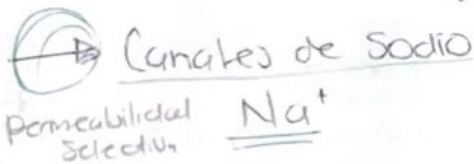 Canales de Sodio
Permeabilidad Na⁺
Selectiva